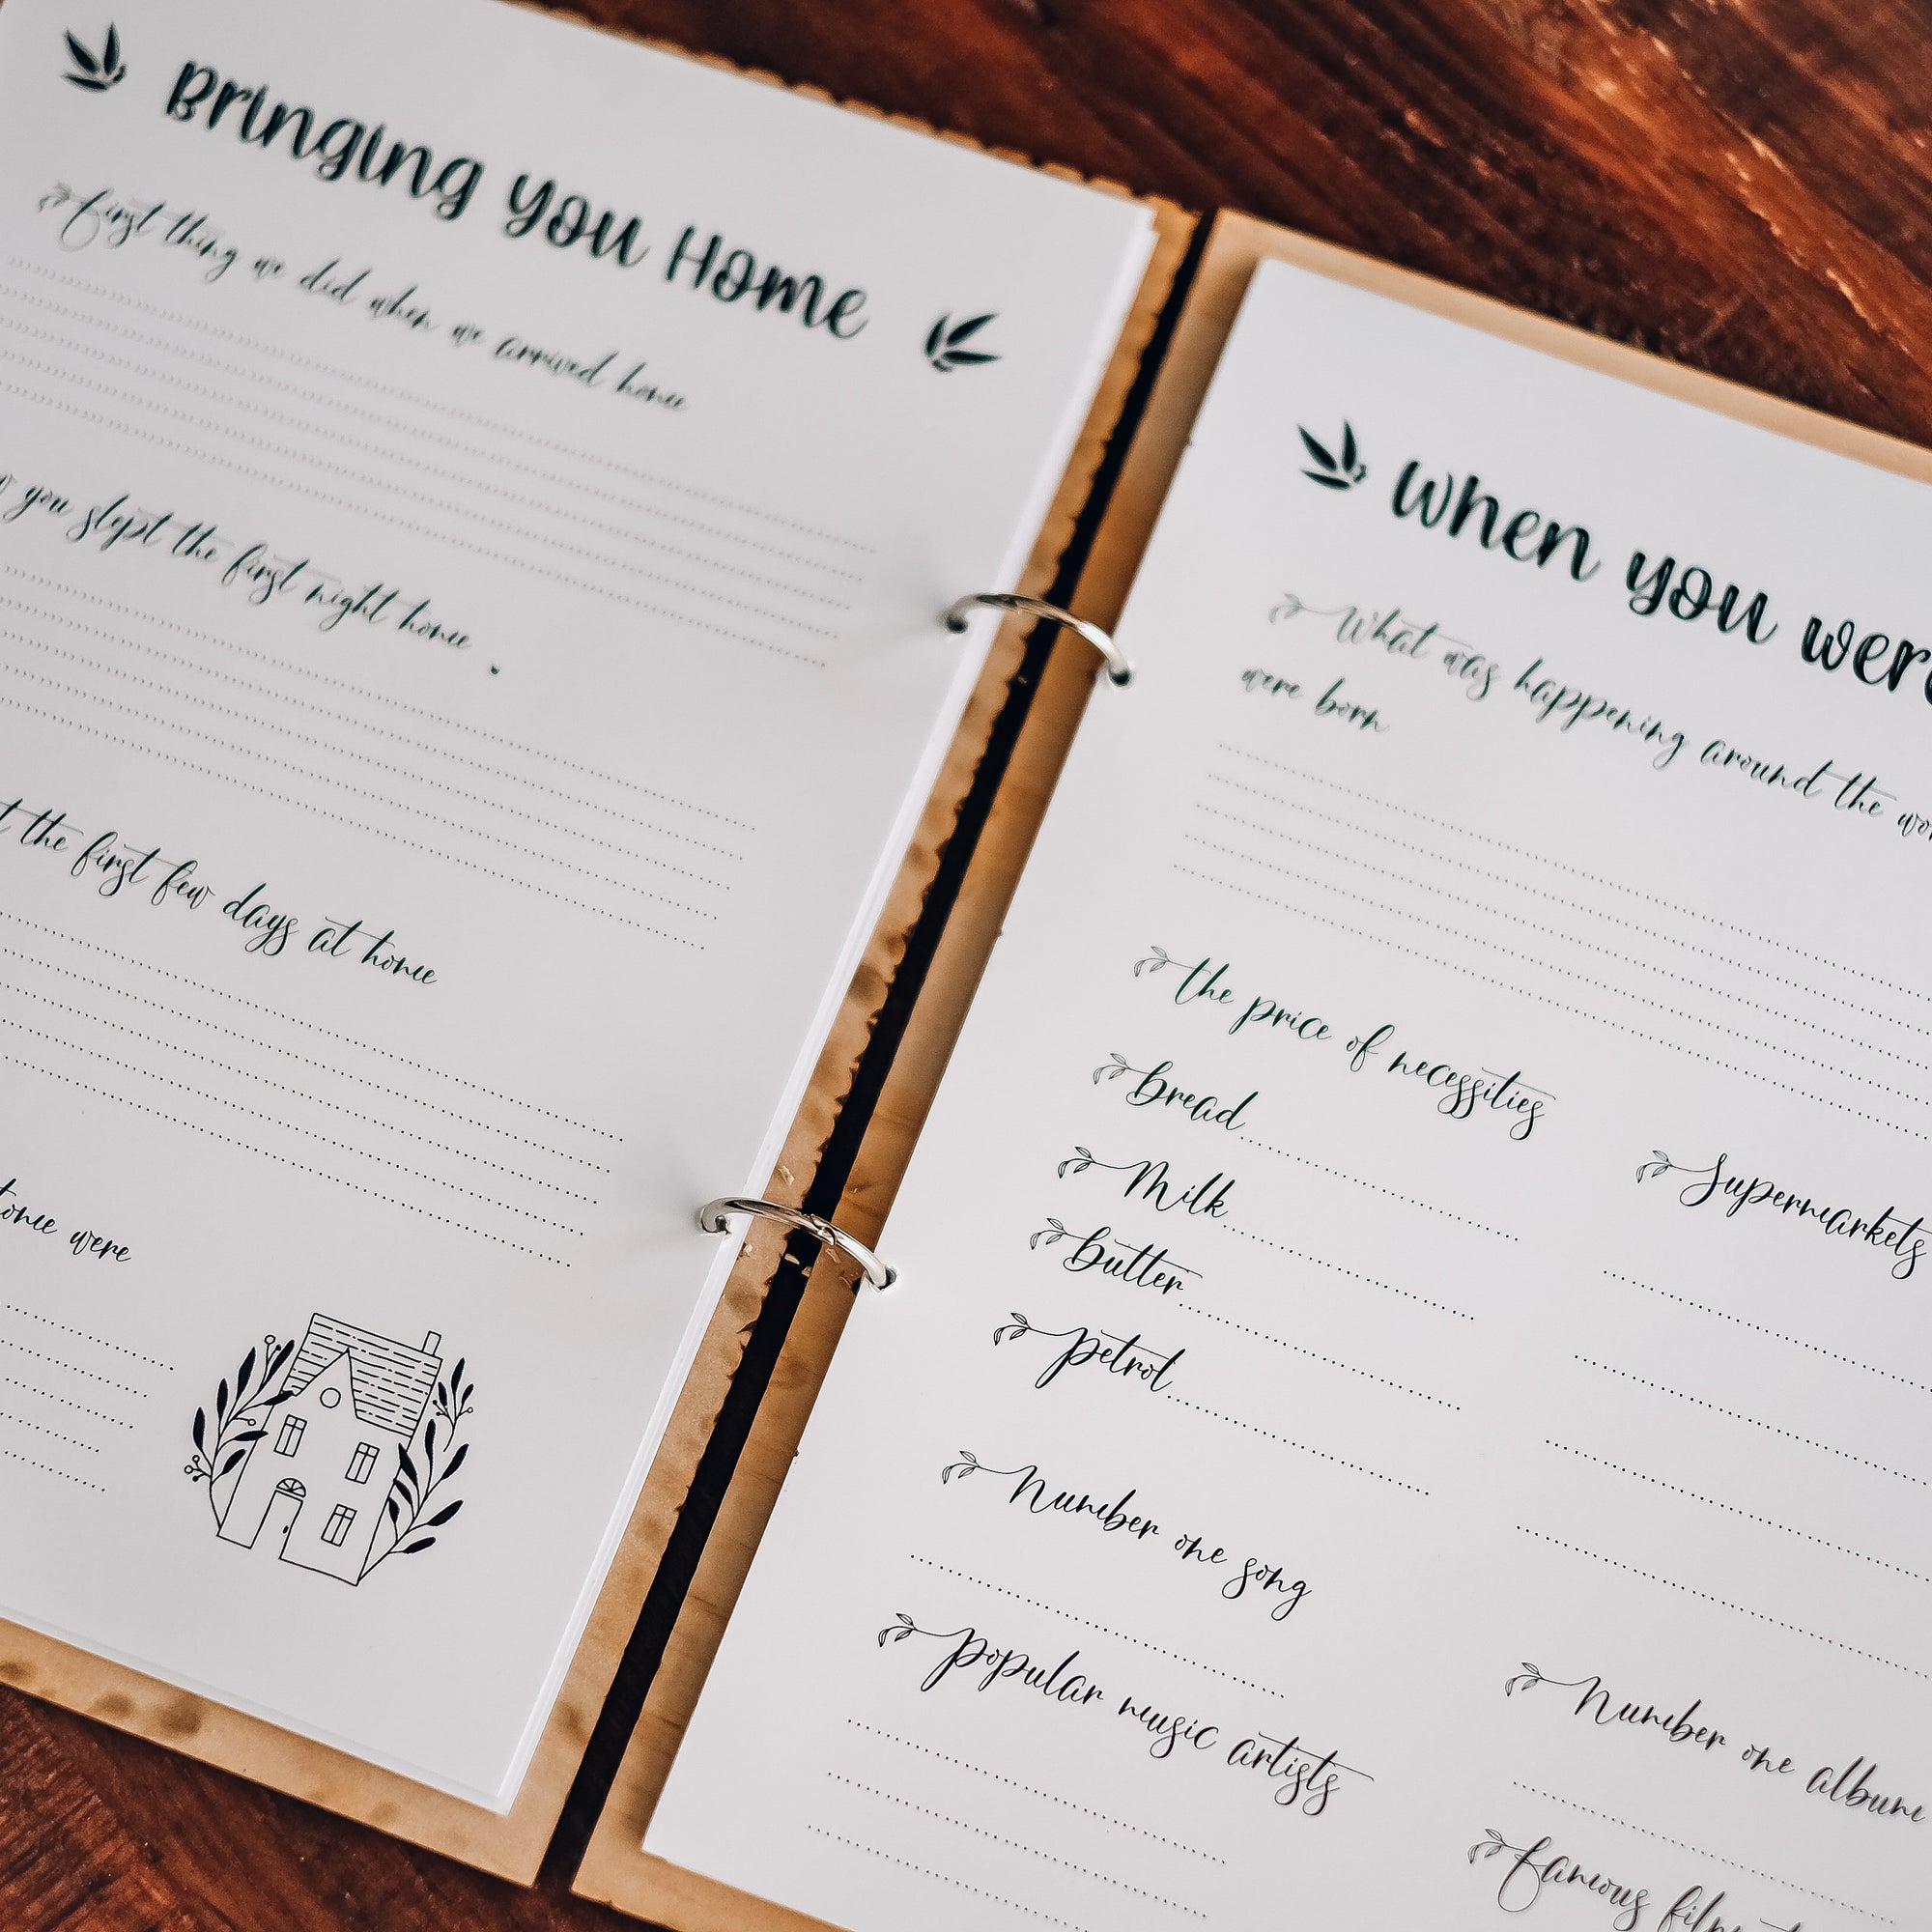 Bringing you Home
First thing we did when we arrived home
you slept the first night home
the first few days at home
home were
When you were
What was happening around the
were born
the price of necessities
bread
Milk
butter
petrol
Supermarkets
Number one song
popular music artists
Number one album
famous